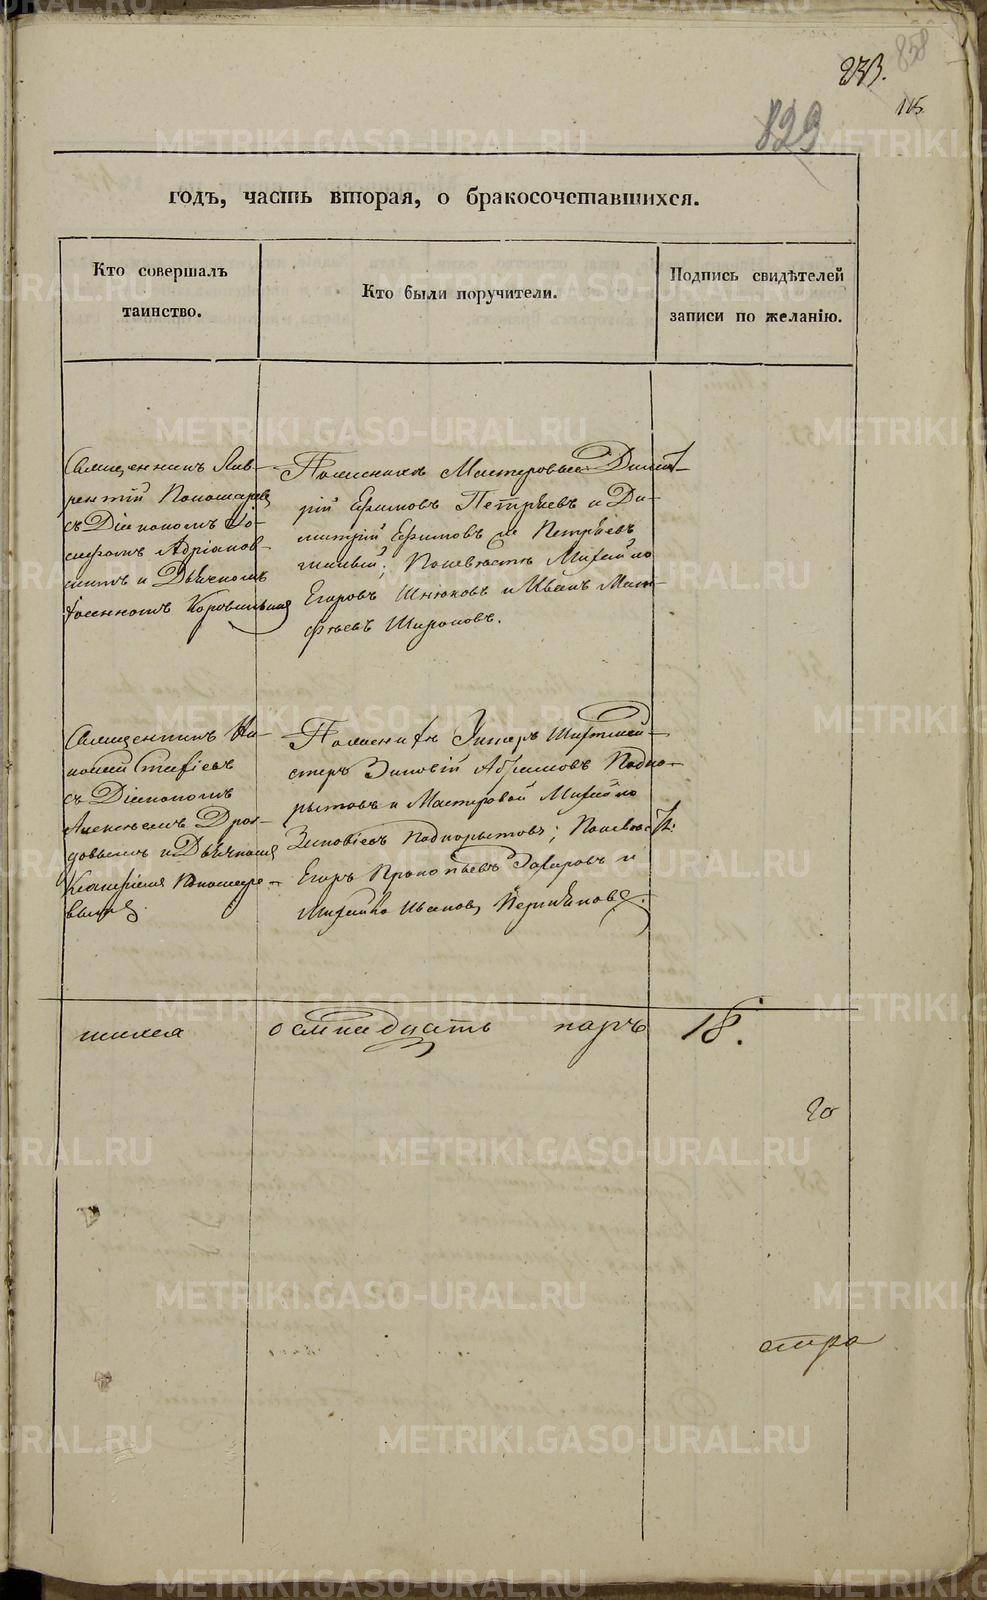 858
233.
115
829
годъ, часть вторая, о бракосочетавшихся.
Кто совершалъ
таинство.
Кто были поручители.
Подпись свидѣтелей
записи по желанію.
Священникъ Лав-
рентій Пономаревъ
съ Діакономъ Іо-
сифомъ Адріанов-
симъ и Дьячкомъ
Коровинымъ
По женихѣ Мастеровые Димит-
рій Ефимовъ Петровъ и Ди-
митрій Ефимовъ же Петровъ
По невѣстѣ Михайло
Егоровъ и Иванъ Мат-
фѣевъ Широковъ.
Священникъ Ни-
колай Стефіевъ
съ Діакономъ
Алексѣемъ Дроз-
довымъ и Дьячкомъ
Пономаре-
вымъ.
По женихѣ Унтеръ Шихтмей-
стеръ Зиновій Абрамовъ Подко-
рытовъ и Мастеровой Михайло
Зиновіевъ Подкорытовъ; По невѣстѣ
Егоръ Прокопьевъ Захаровъ и
Михайло Ивановъ
осмнадцать паръ 18.
METRIKI.GASO-URAL.RU